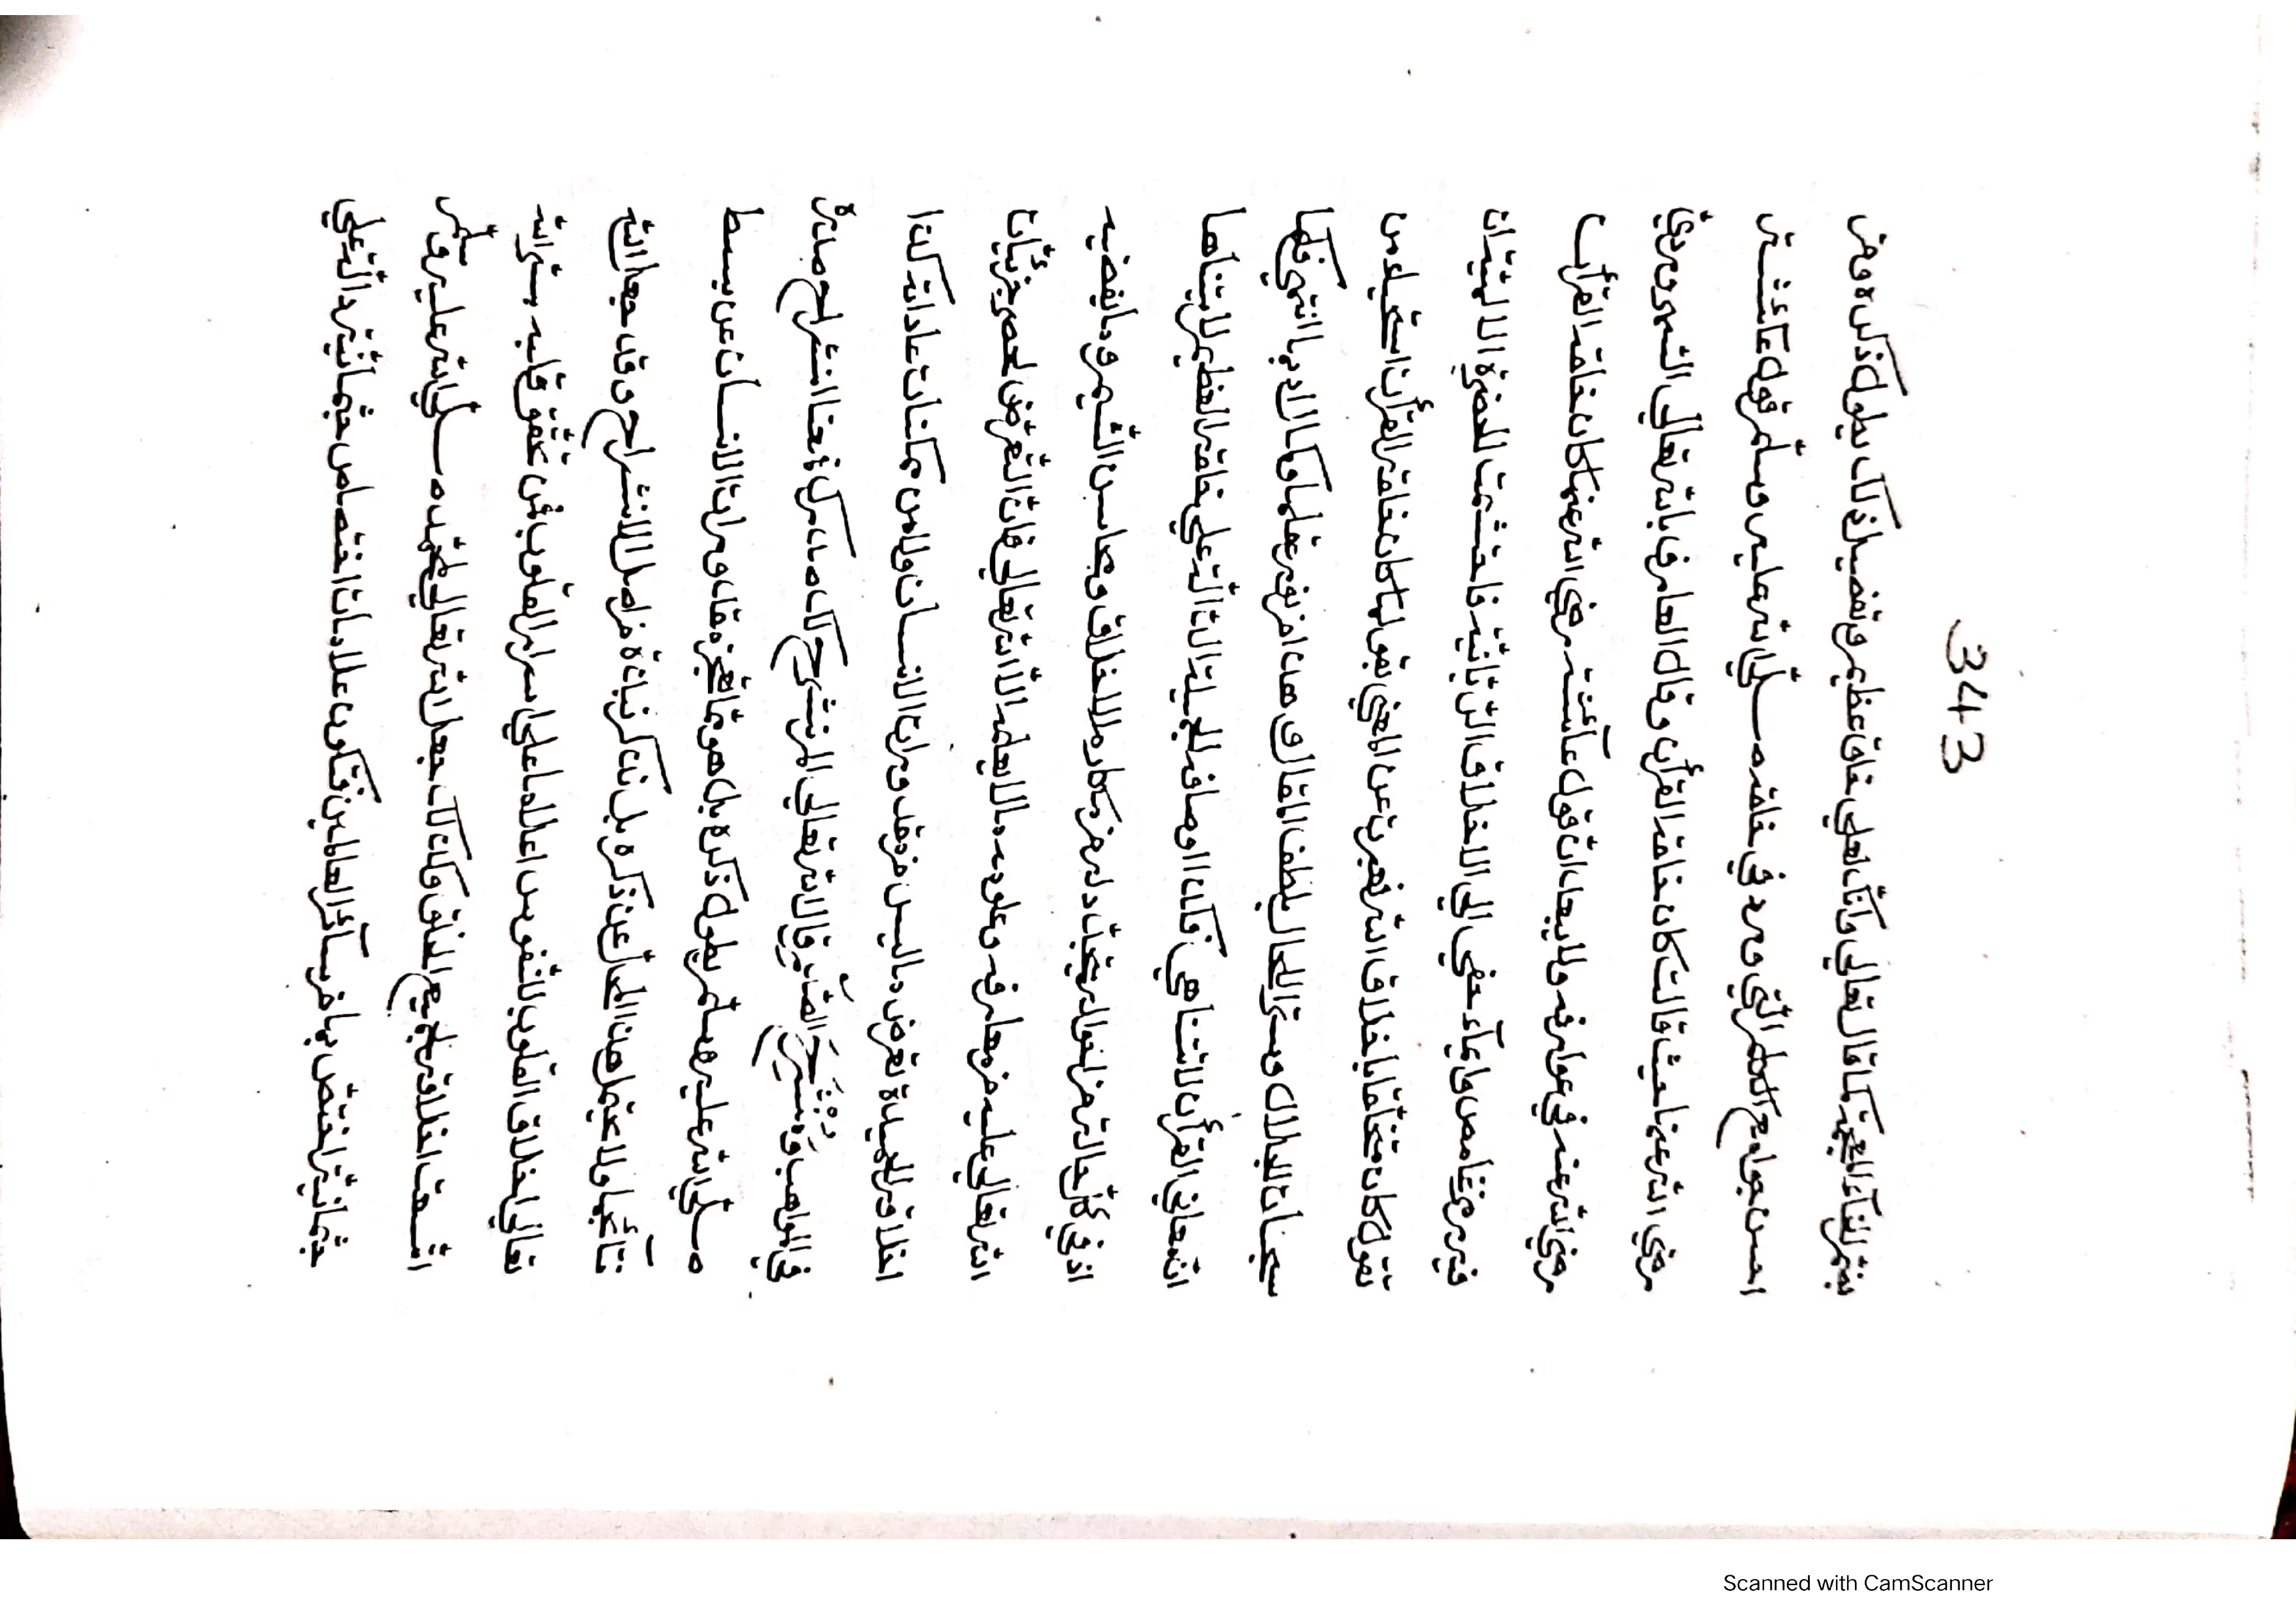 343
لقآء المعجز كما قال تعالي وانّك لعلي خلق عظيم وتفصيل ذلك يطول ذكره ومن
احسن جوامع الكلم الّتي ورد في خلقه صلّي الله عليه وسلّم قول عائشة
رضي الله عنها حيث قالت كان خلقه القرأن وقال العارف بالله تعالي السهروردي
رضي الله عنه في عوارفه ولا يبعد ان قول عآئشة رضي الله عنها كان خلقه القرأن
فيه رمز غامض وايمآء خفي الي الاخلاق الربّانيّة فاحتشمت الحضرة الالهيّة ان
تقول كان متخلّقا باخلاق الله فعبرت عن المعني بقولها كان خلقه القرأن استحيآء من
سبحات الجلال وسترا للحال بلطف المقال وهذا من وفور عقلها وكمال ادبها انتهي فكما
انّ معاني القرأن لا تتناهي فكذا اوصافه الجميلة الدالّة علي خلقه العظيم لا يتناها
اذ في كلّ حالة من احواله يتجدّد له من مكارم الاخلاق ومحاسن الشّيم وما يفيضه
الله تعالي عليه من معارفه وعلومه ما لا يعلمه الّا الله تعالي فاذا التّعرّض لحصر جزئيّات
اخلاقه الحميدة تعرّض ما ليس من مقدور الانسان ولا من ممكنات عاداته كذا
في المواهب القدر قال الله تعالي الم نشرح لك صدرك انشراح صدره
صلّي الله عليه وسلّم يطول ذكره بل هو ممّا يعجز مقدور الانسان عن بسط
هذا المحل عن ذكره بل نذكر نبذة من اصل الانشراح وقد جعل الله
تعالي اخلاق القلوب للنّفوس اعلاما علي اسرار القلوب فمن تحقّق قلبه بسرّ الله
اتّسعت اخلاقه لجميع الخلق وكذلك جعل الله تعالي لمحمّد صلّي الله عليه وسلّم
جثمانيّة اختصّ بها من سآئر العالمين فتكون علامات اختصاص جثمانيّته دالّة علي
Scanned with CamScanner